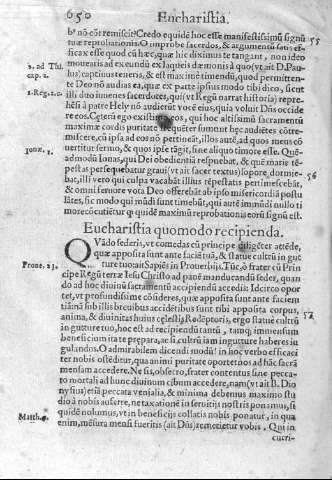 650 Eucharistia.
bꝰ nō cōtremiscit? Credo equidē hoc esse manifestissimū signū 55
tuæ reprobationis. O improbe sacerdos, & argumentū satis ef-
ficax esse quod cū hæc, quæ hic diximus te tangant, non ideo
2. ad Thi. moueatis ad exeundū ex laqueis dæmonis à quo (vt ait D. Pau-
cap. 2. lus) captiuus teneris, & est maximè timendū, quod permitten-
te Deo nō audias ea, quæ ex parte ipsius modo tibi dico, sicut
1. Reg. 2. illi duo iuuenes sacerdotes, qui (vt Regū narrat historia) repre-
hēsi à patre Hely nō audierūt vocē eius, quia voluit Dìs occide
re eos. Ceterū ego existimo eos, qui hoc altissimū sacramentū
maximæ cordis puritate
mere, cū ipsa ad eos nō pertineāt, illos autē, ad quos meus cō
Ionæ. 1. uertitur sermo, & quos ipse tāgit, sine aliquo timore esse. Quē
admodū Ionas, qui Dei obedientiā respuebat, & quē maris tē-
pestas persequebatur graui (vt ait sacer textus) sopore, dormie- 56
bat, illi vero qui culpa vacabāt illius tēpestatis pertimescebāt,
& omni feruore vota Deo offerebāt ab ipso misericordiā postu
lātes, sic modo qui mūdi sunt timebūt, qui autē immūdi nullo ti
more cōcutiētur quidē maximū reprobationis eorū signū est.
Eucharistia quomodo recipienda.
QVādo sederis, vt comedas cū principe diligēter attēde,
quæ apposita sunt ante faciē tuā, & statue cultrū in gut-
Prouer. 23. ture tuo ait Sapiēs in Prouerbijs. Tūc, ò frater cū Prin
cipe Regū terræ Iesu Christo ad panē manducandū sedes, quan
do ad hoc diuinū sacramentū accipiendū accedis: Idcirco opor
tet, vt profundissime cōsideres, quæ apposita sunt ante faciem
tuā nā sub illis breuibus accidētibus sunt tibi apposita corpus,
anima, & diuinitas huius cælestis Redēptoris, ergo statue cultrū 57
in gutture tuo, hoc est ad recipiendū tantū, tamq; immensum
beneficium ita te prepara, ac si cultrū iam in gutture haberes in
gulandos. O admirabilem dicendi modū! in hoc verbo efficaci
ter nobis ostēdetur, qua animi puritate oporteat nos ad hāc sacrā
mensam accedere. Ne sis, obsecro, frater contentus sine pecca-
to mortali ad hunc diuinum cibum accedere, nam (vt ait B. Dio
nysius) etiā peccata venialia, & minima debemus maximo stu
dio à nobis auferre, ne taxationē in seruitijs nostris ponamus, si
quidē nō lumus, vt in beneficijs collatis nobis ponatur, in qua
Matth. enim, mēsura mensi fueritis (ait Dñs) remetietur vobis. Qui in
cucri-